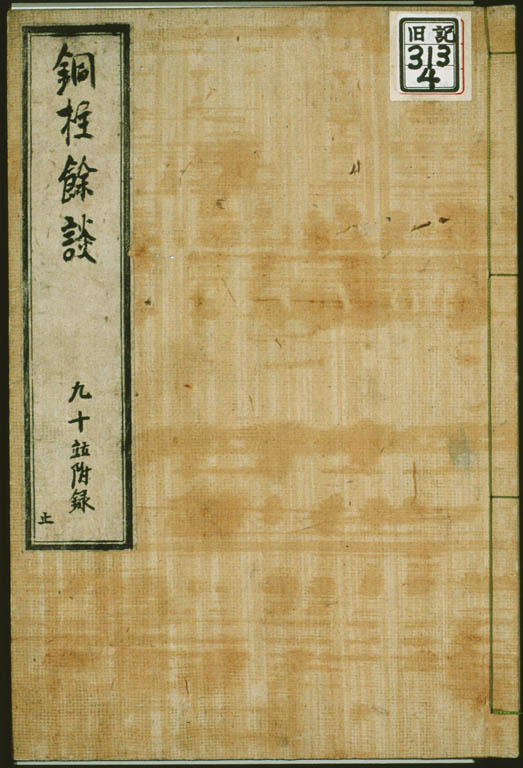 銅柱餘談
九十竝附録
止
旧記
313
4